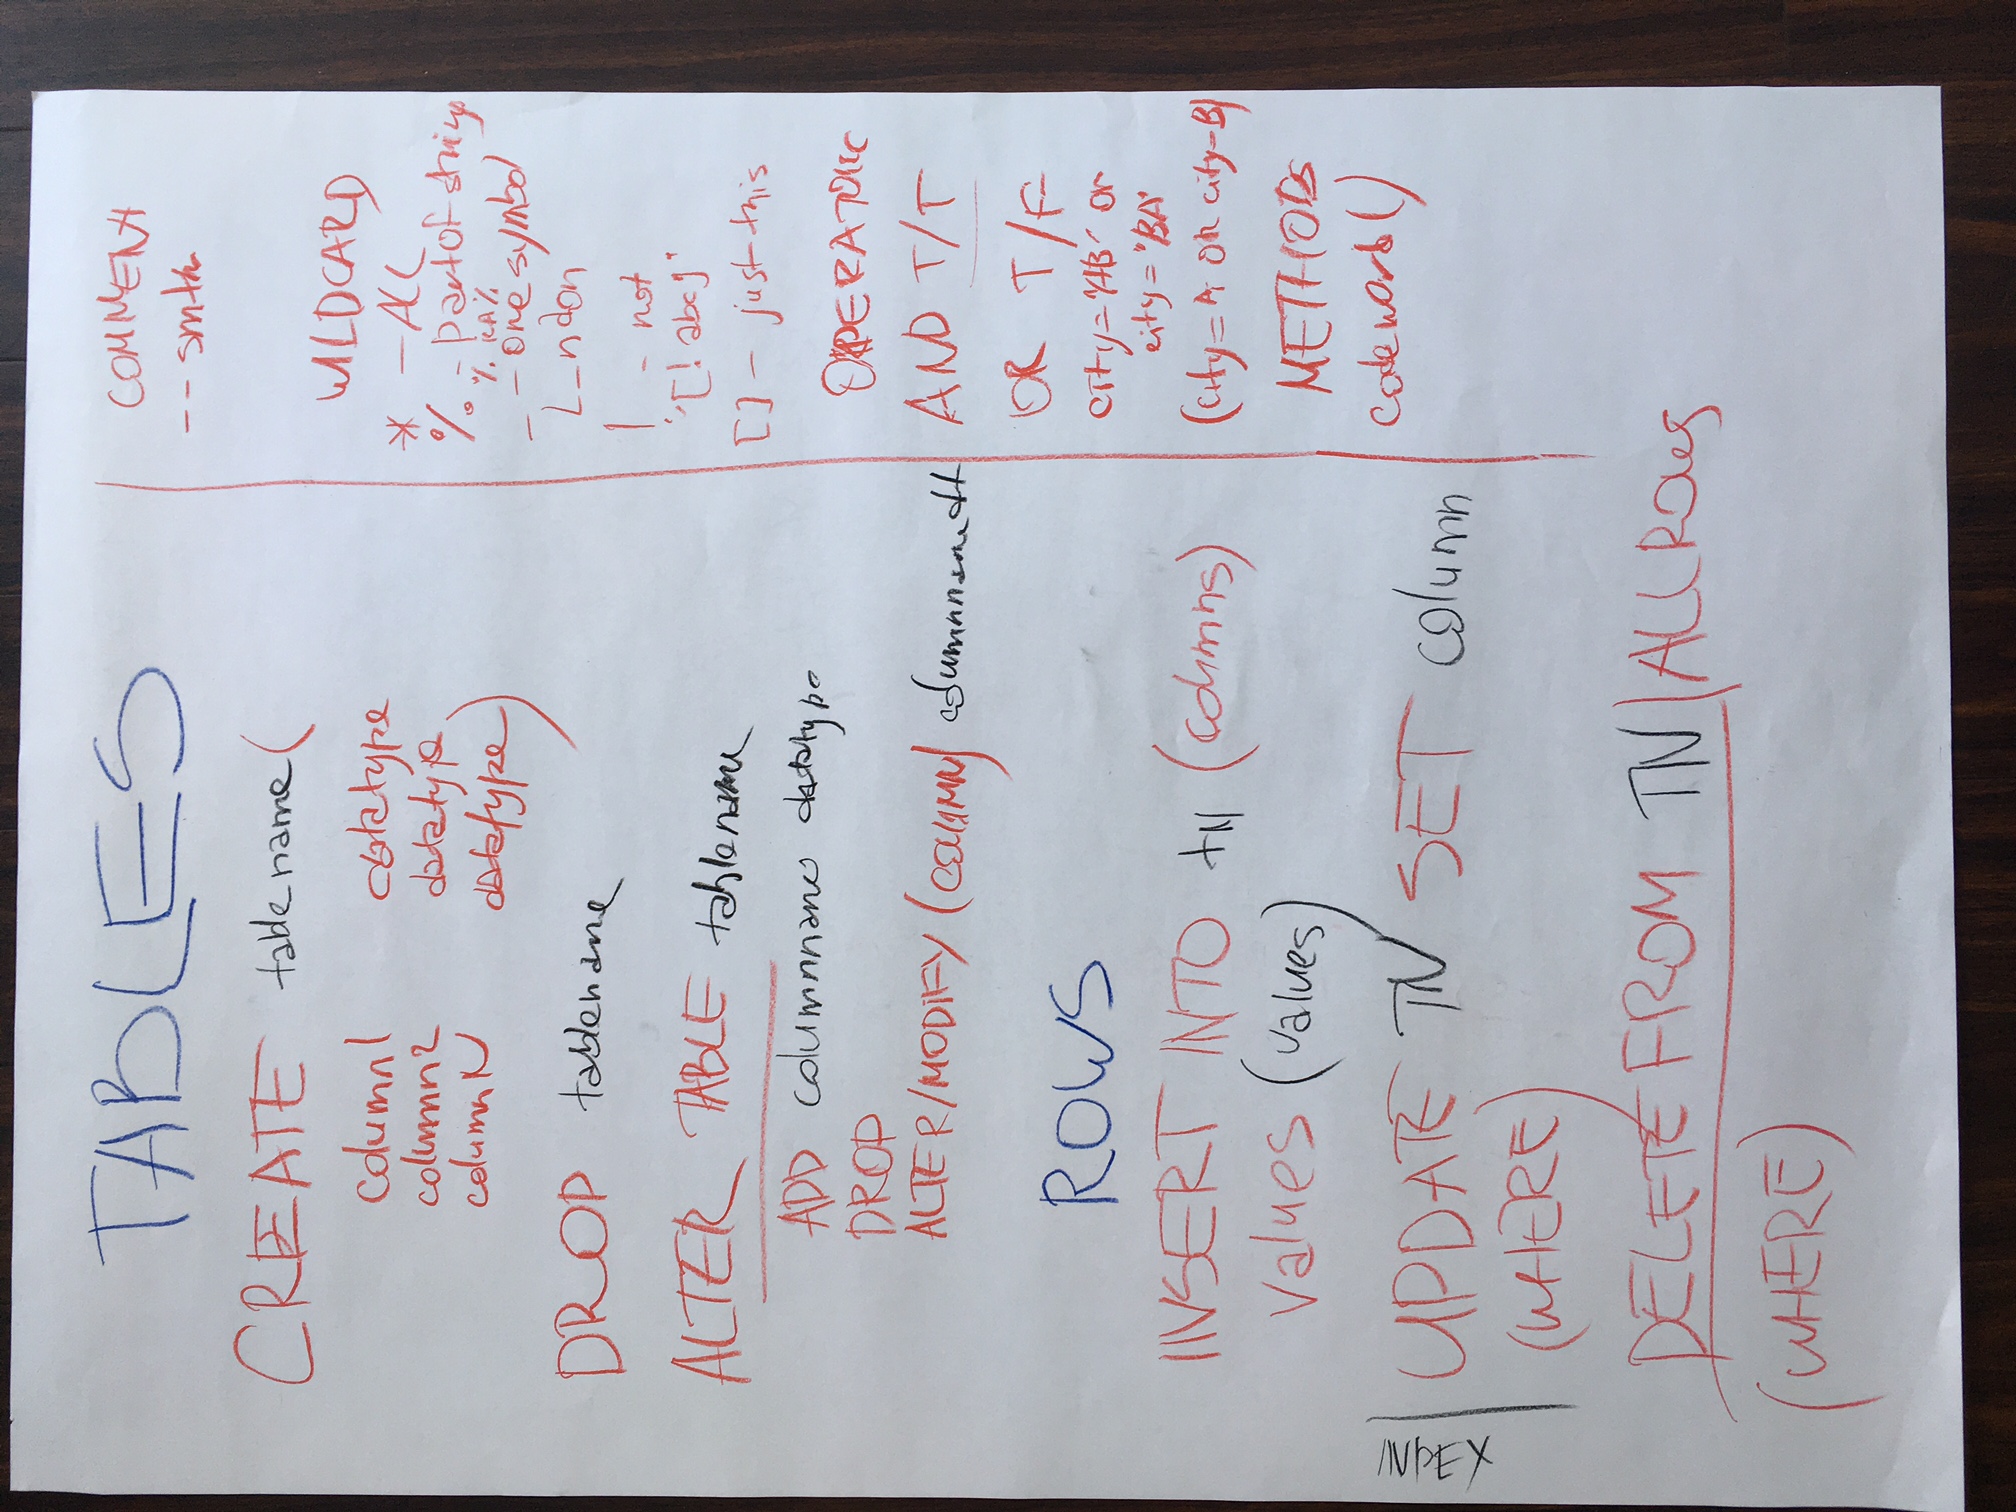 TABLES
CREATE tablename(
column1 datatype
column2 datatype
columnN datatype)
DROP tablename
ALTER TABLE tablename
ADD columnname datatype
DROP
ALTER/MODIFY (COLUMN) columnname dt
ROWS
INSERT INTO tN (columns)
values (values)
INDEX
UPDATE TN SET column
(WHERE)
DELETE FROM TN/ALL Rows
(WHERE)
COMMENT
-- smth
WILDCARD
* - ALL
% - part of strings
% KA%
_ - one symbol
L_ndon
! - not
"[! abc]"
[] - just this
OPERATORS
AND T/T
OR T/F
city= or
city= "BA"
(city=A OR city=B)
METHODS
codeword()